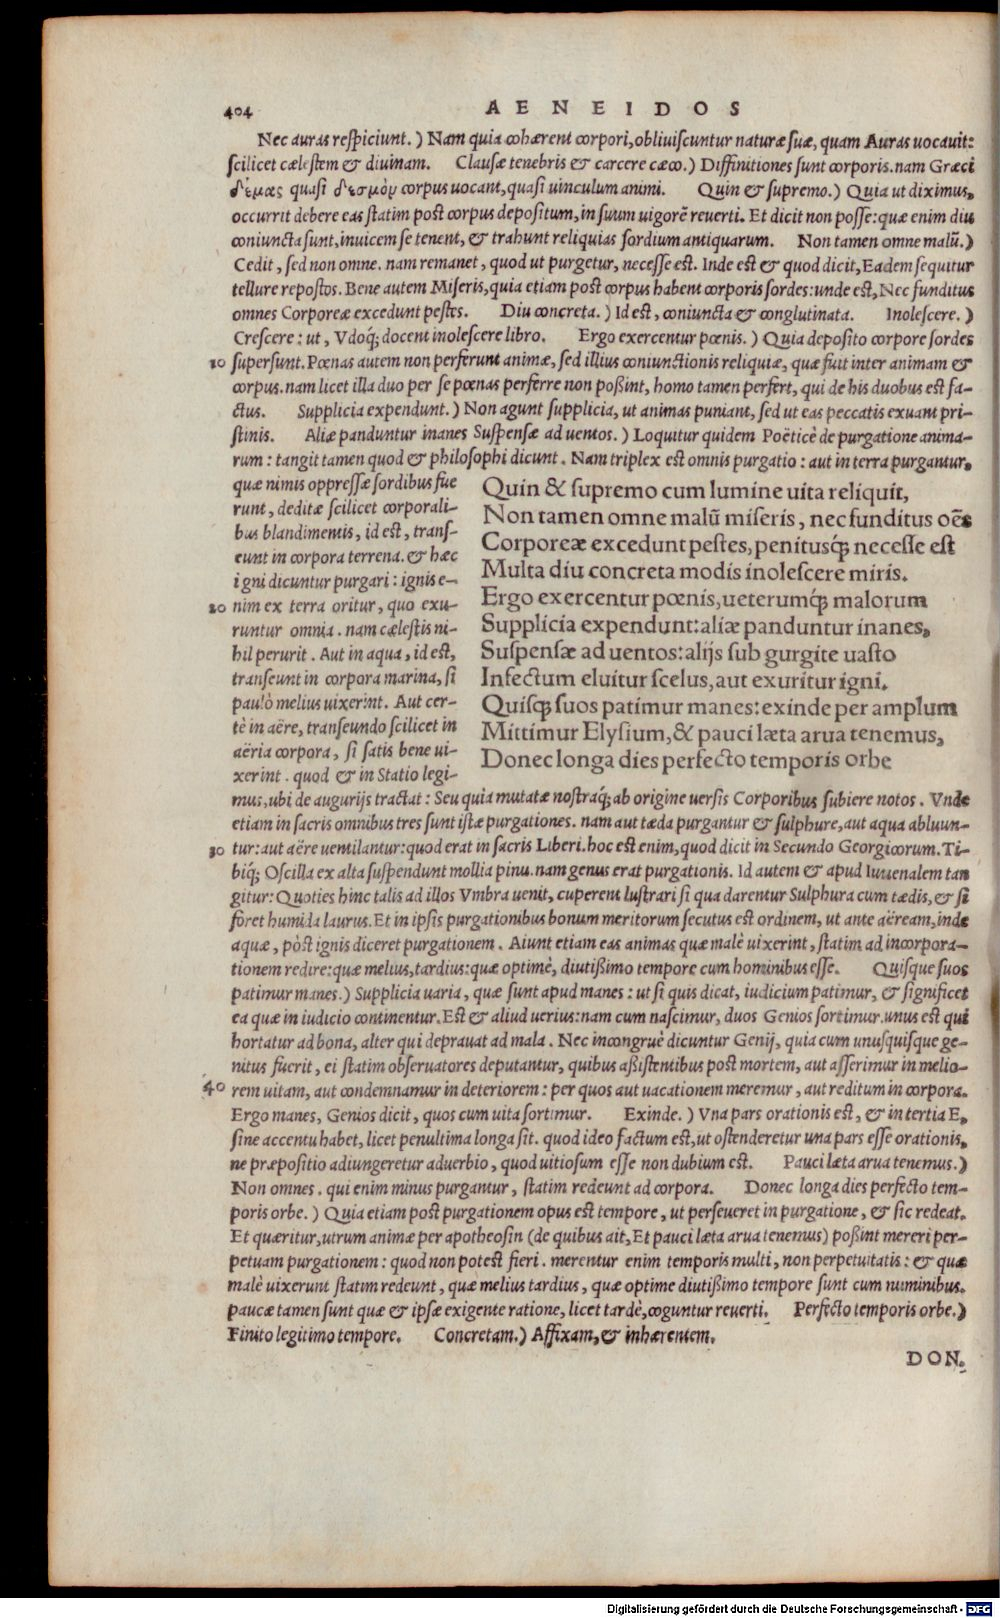 404
AENEIDOS
Nec auras respiciunt.) Nam quia cohærent corpori, obliuiscuntur naturæ suæ, quam Auras uocauit:
scilicet cælestem & diuinam. Clausæ tenebris & carcere cæco.) Diffinitiones sunt corporis. nam Græci
δέμας quasi δεσμὸν corpus uocant, quasi uinculum animi. Quin & supremo.) Quia ut diximus,
occurrit debere eas statim post corpus depositum, in suum uigorē reuerti. Et dicit non posse: quæ enim diu
coniuncta sunt, inuicem se tenent, & trahunt reliquias sordium antiquarum. Non tamen omne malū.)
Cedit, sed non omne. nam remanet, quod ut purgetur, necesse est. Inde est & quod dicit, Eadem sequitur
tellure repostos. Bene autem Miseris, quia etiam post corpus habent corporis sordes: unde est, Nec funditus
omnes Corporeæ excedunt pestes. Diu concreta.) Id est, coniuncta & conglutinata. Inolescere.)
Crescere: ut, Vdoq́; docent inolescere libro. Ergo exercentur pœnis.) Quia deposito corpore sordes
10 supersunt. Pœnas autem non perferunt animæ, sed illius coniunctionis reliquiæ, quæ fuit inter animam &
corpus. nam licet illa duo per se pœnas perferre non poßint, homo tamen perfert, qui de his duobus est fa-
ctus. Supplicia expendunt.) Non agunt supplicia, ut animas puniant, sed ut eas peccatis exuant pri-
stinis. Aliæ panduntur inanes Suspensæ ad uentos.) Loquitur quidem Poëticè de purgatione anima-
rum: tangit tamen quod & philosophi dicunt. Nam triplex est omnis purgatio: aut in terra purgantur,
quæ nimis oppressæ sordibus fue
runt, deditæ scilicet corporali-
bus blandimentis, id est, trans-
eunt in corpora terrena. & hæc
igni dicuntur purgari: ignis e-
20 nim ex terra oritur, quo exu-
runtur omnia. nam cælestis ni-
hil perurit. Aut in aqua, id est,
transeunt in corpora marina, si
paulò melius uixerint. Aut cer-
tè in aëre, transeundo scilicet in
aëria corpora, si satis bene ui-
xerint. quod & in Statio legi-
Quin & supremo cum lumine uita reliquit,
Non tamen omne malū miseris, nec funditus oēs
Corporeæ excedunt pestes, penitusq́; necesse est
Multa diu concreta modis inolescere miris.
Ergo exercentur pœnis, ueterumq́; malorum
Supplicia expendunt: aliæ panduntur inanes,
Suspensæ ad uentos: alijs sub gurgite uasto
Infectum eluitur scelus, aut exuritur igni.
Quisq; suos patimur manes: exinde per amplum
Mittimur Elysium, & pauci læta arua tenemus,
Donec longa dies perfecto temporis orbe
mus, ubi de augurijs tractat: Seu quia mutatæ nostraq́; ab origine uersis Corporibus subiere notos. Vnde
etiam in sacris omnibus tres sunt istæ purgationes. nam aut tæda purgantur & sulphure, aut aqua abluun-
30 tur: aut aëre uentilantur: quod erat in sacris Liberi. hoc est enim, quod dicit in Secundo Georgicorum. Ti-
biq́; Oscilla ex alta suspendunt mollia pinu. nam genus erat purgationis. Id autem & apud Iuuenalem tan
gitur: Quoties hinc talis ad illos Vmbra uenit, cuperent lustrari si qua darentur Sulphura cum tædis, & si
foret humida laurus. Et in ipsis purgationibus bonum meritorum secutus est ordinem, ut ante aëream, inde
aquæ, pòst ignis diceret purgationem. Aiunt etiam eas animas quæ malè uixerint, statim ad incorpora-
tionem redire: quæ melius, tardius: quæ optimè, diutißimo tempore cum hominibus esse. Quisque suos
patimur manes.) Supplicia uaria, quæ sunt apud manes: ut si quis dicat, iudicium patimur, & significet
ea quæ in iudicio continentur. Est & aliud uerius: nam cum nascimur, duos Genios sortimur. unus est qui
hortatur ad bona, alter qui deprauat ad mala. Nec incongruè dicuntur Genij, quia cum unusquisque ge-
nitus fuerit, ei statim obseruatores deputantur, quibus aßistentibus post mortem, aut asserimur in melio-
40 rem uitam, aut condemnamur in deteriorem: per quos aut uacationem meremur, aut reditum in corpora.
Ergo manes, Genios dicit, quos cum uita sortimur. Exinde.) Vna pars orationis est, & in tertia E,
sine accentu habet, licet penultima longa sit. quod ideo factum est, ut ostenderetur una pars esse orationis,
ne præpositio adiungeretur aduerbio, quod uitiosum esse non dubium est. Pauci læta arua tenemus.)
Non omnes. qui enim minus purgantur, statim redeunt ad corpora. Donec longa dies perfecto tem-
poris orbe.) Quia etiam post purgationem opus est tempore, ut perseueret in purgatione, & sic redeat.
Et quæritur, utrum animæ per apotheosin (de quibus ait, Et pauci læta arua tenemus) poßint mereri per-
petuam purgationem: quod non potest fieri. merentur enim temporis multi, non perpetuitatis: & quæ
malè uixerunt statim redeunt, quæ melius tardius, quæ optime diutißimo tempore sunt cum numinibus.
paucæ tamen sunt quæ & ipsæ exigente ratione, licet tardè, coguntur reuerti. Perfecto temporis orbe.)
Finito legitimo tempore. Concretam.) Affixam, & inhærentem.
DON.
Digitalisierung gefördert durch die Deutsche Forschungsgemeinschaft - DFG